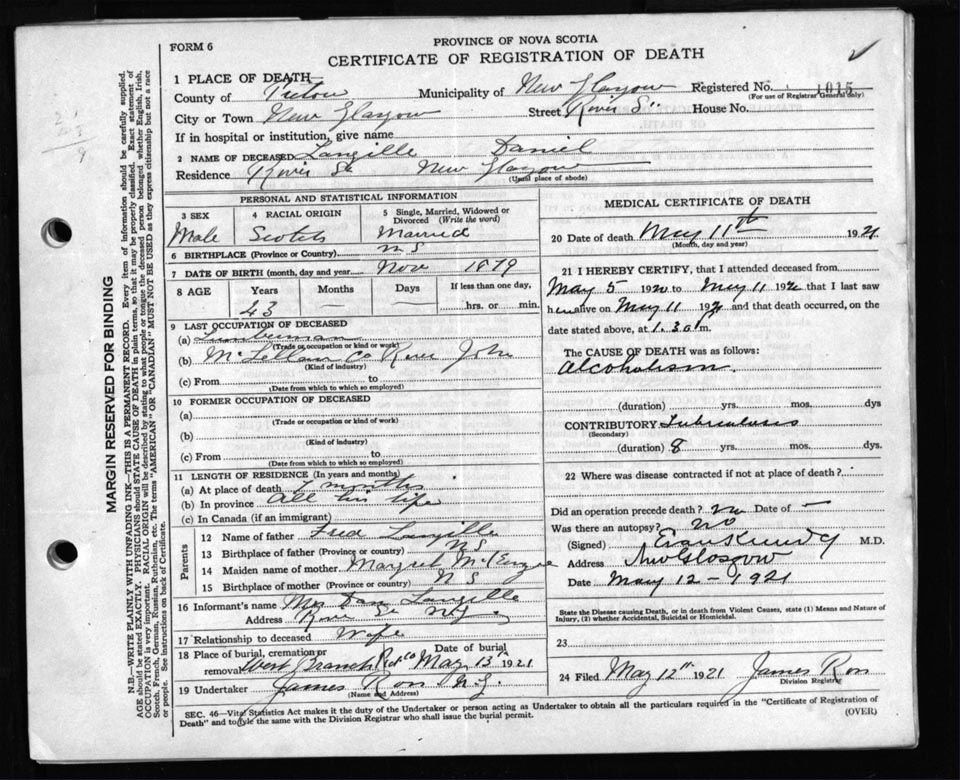 PROVINCE OF NOVA SCOTIA
FORM 6
CERTIFICATE OF REGISTRATION OF DEATH
1 PLACE OF DEATH—
County of Pictou Municipality of New Glasgow Registered No. 1015
(For use of Registrar General only)
City or Town New Glasgow Street River St House No.
If in hospital or institution, give name
2 NAME OF DECEASED Langille Daniel
Residence River St New Glasgow
(Usual place of abode)
PERSONAL AND STATISTICAL INFORMATION
3 SEX 4 RACIAL ORIGIN 5 Single, Married, Widowed or Divorced (Write the word)
Male Scotch Married
6 BIRTHPLACE (Province or Country) N S
7 DATE OF BIRTH (month, day and year) Nov 1879
8 AGE Years Months Days If less than one day,
43 — — hrs. or min.
9 LAST OCCUPATION OF DECEASED
(a) Lumberman
(Trade or occupation or kind or work)
(b) McLellan Co River John
(Kind of industry)
(c) From to
(Date from which to which so employed)
10 FORMER OCCUPATION OF DECEASED
(a)
(Trade or occupation or kind of work)
(b)
(Kind of industry)
(c) From to
(Date from which to which so employed)
11 LENGTH OF RESIDENCE (In years and months)
(a) At place of death months
(b) In province All his life
(c) In Canada (if an immigrant)
Parents
12 Name of father Fred Langille
13 Birthplace of father (Province or country) N S
14 Maiden name of mother McKenzie
15 Birthplace of mother (Province or country) N S
16 Informant's name Mrs Dan Langille
Address River St N.G.
17 Relationship to deceased Wife
18 Place of burial, cremation or removal Date of burial
West Branch Pict Co May 13th 1921
19 Undertaker James Ross N.G.
(Name and Address)
MEDICAL CERTIFICATE OF DEATH
20 Date of death May 11th 1921
(Month, day and year)
21 I HEREBY CERTIFY, that I attended deceased from
May 5 1920 to May 11 192 that I last saw
h alive on May 11 192 and that death occurred, on the
date stated above, at 1.30 a m.
The CAUSE OF DEATH was as follows:
Alcoholism.
(duration) yrs. mos. dys
CONTRIBUTORY Tuberculosis
(Secondary)
(duration) 8 yrs. mos. dys.
22 Where was disease contracted if not at place of death?
Did an operation precede death? no Date of —
Was there an autopsy? No
(Signed) Evan Kennedy M.D.
Address New Glasgow
Date May 12 - 1921
State the Disease causing Death, or in death from Violent Causes, state (1) Means and Nature of Injury, (2) whether Accidental, Suicidal or Homicidal.
23
24 Filed May 12th 1921 James Ross
Division Registrar
SEC. 46—Vital Statistics Act makes it the duty of the Undertaker or person acting as Undertaker to obtain all the particulars required in the "Certificate of Registration of
Death" and to file the same with the Division Registrar who shall issue the burial permit. (OVER)
MARGIN RESERVED FOR BINDING
N.B—WRITE PLAINLY WITH UNFADING INK—THIS IS A PERMANENT RECORD. Every item of information should be carefully supplied.
AGE should be stated EXACTLY. PHYSICIANS should STATE CAUSE OF DEATH in plain terms, so that it may be properly classified. Exact statement of
OCCUPATION is very important. RACIAL ORIGIN will be described by stating to what people or tongue the deceased person belonged whether English, Irish,
Scotch, French, German, Russian, Ruthenian, etc. The terms "AMERICAN" or "CANADIAN" MUST NOT BE USED as they express citizenship but not a race
or people. See instructions on back of Certificate.